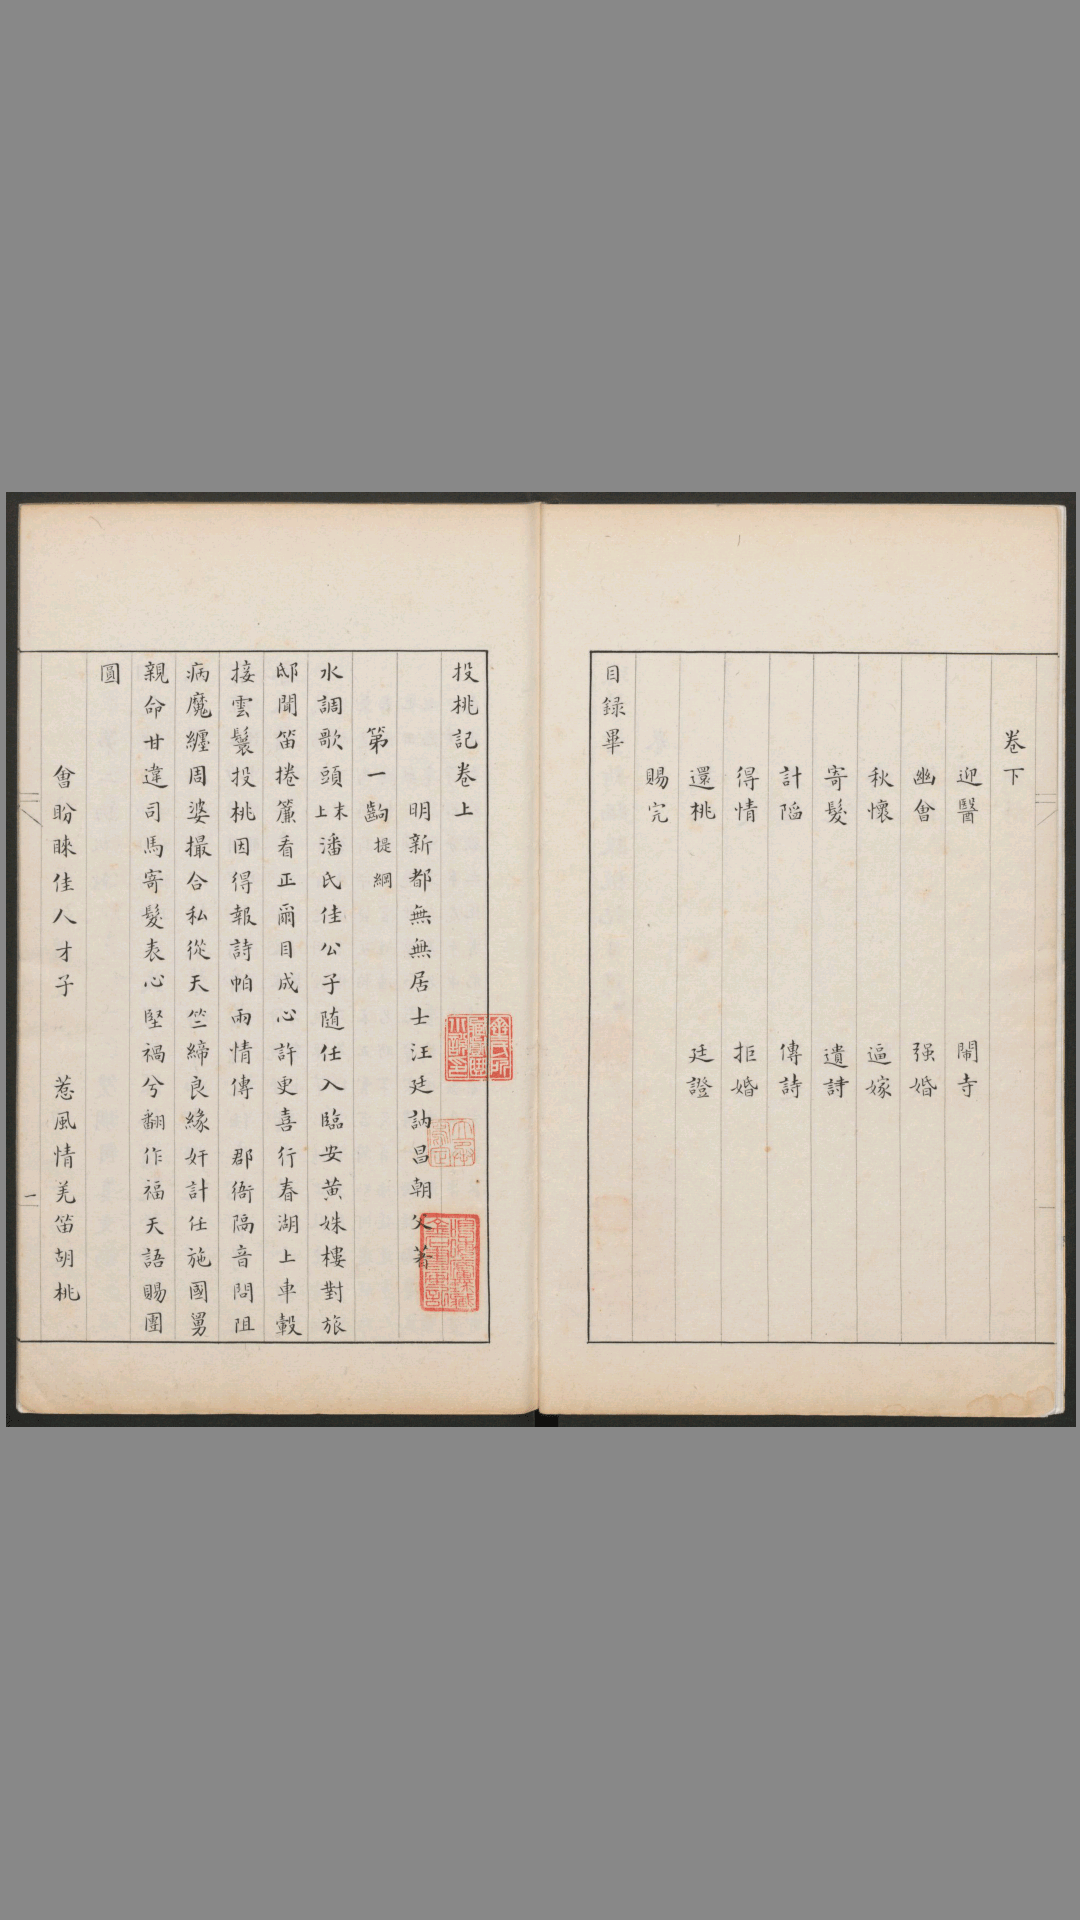 卷下
迎醫 鬧寺
幽會 强婚
秋懷 逼嫁
寄髮 遺詩
計陷 傳詩
得情 拒婚
還桃 廷證
賜完
目録畢
投桃記卷上
明新都無無居士汪廷訥昌朝父著
第一齣提綱
水調歌頭末上潘氏佳公子随任入臨安黄姝樓對旅
邸聞笛捲簾看正爾目成心許更喜行春湖上車轂
接雲鬟投桃因得報詩帕兩情傳 郡衙隔音問阻
病魔纏周婆撮合私從天竺締良緣奸計任施國舅
親命甘違司馬寄髮表心堅禍兮翻作福天語賜團
圓
會盼睞佳人才子 惹風情羌笛胡桃
一